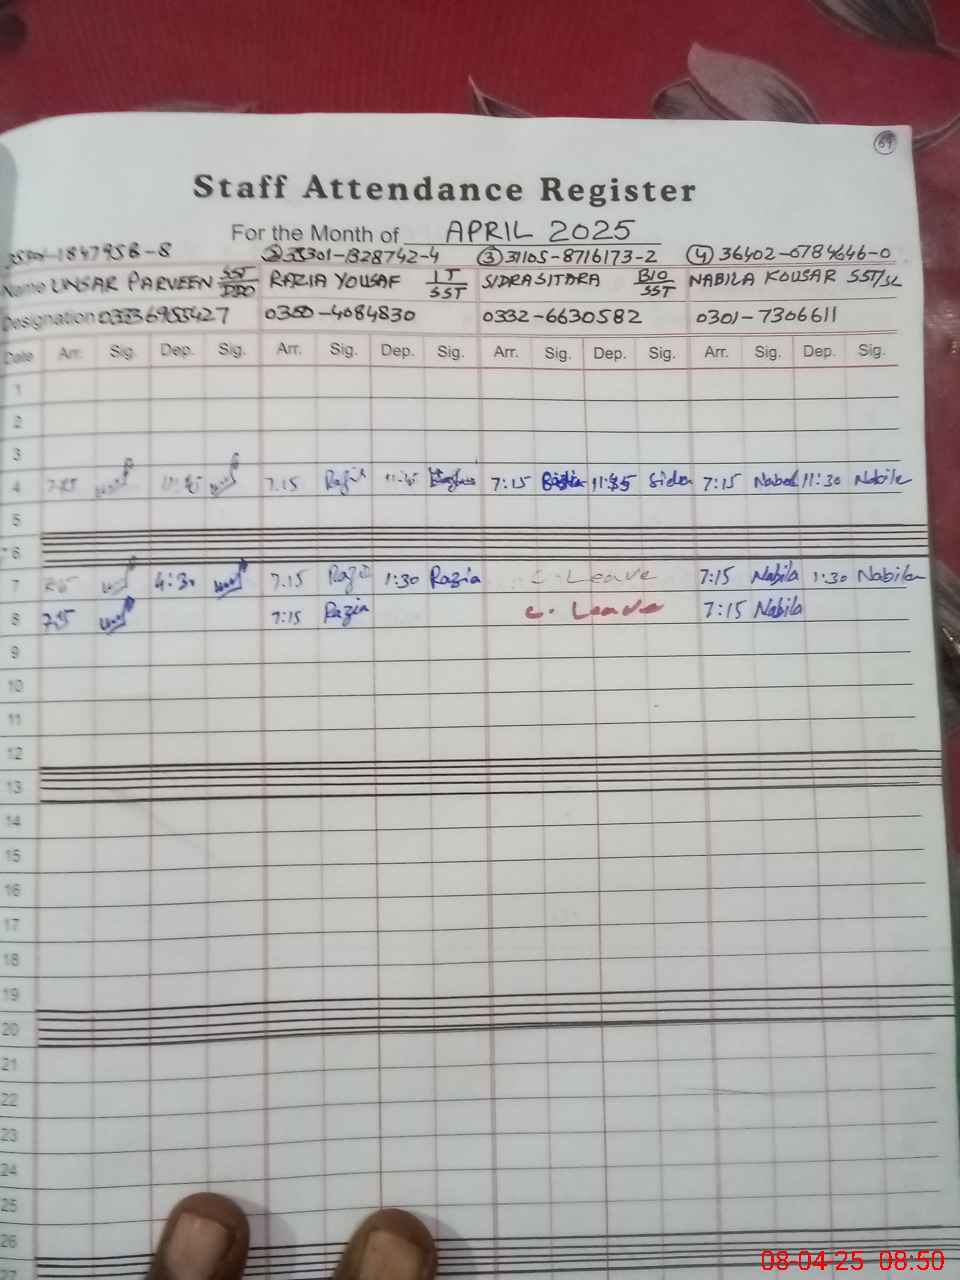 69
Staff Attendance Register
For the Month of APRIL 2025
② 35301-1328742-4 ③ 37105-8716173-2 ④ 36402-6784646-0
Name UNSAR PARVEEN SST/DDO RAZIA YOUSAF IT/SST SIDRA SITARA BIO/SST NABILA KOUSAR SST/SC
Designation 03336955427 0300-4084830 0332-6630582 0301-7306611
Date Arr. Sig. Dep. Sig. Arr. Sig. Dep. Sig. Arr. Sig. Dep. Sig. Arr. Sig. Dep. Sig.
1
2
3
4 7.15 11:45 7:15 11:35 Sidra 7:15 Nabila 11:30 Nabila
5
6
7 4:30 7.15 Razia 1:30 Razia C. Leave 7:15 Nabila 1:30 Nabila
8 7:15 Razia C. Leave 7:15 Nabila
9
10
11
12
13
14
15
16
17
18
19
20
21
22
23
24
25
26
27
08-04-25 08:50